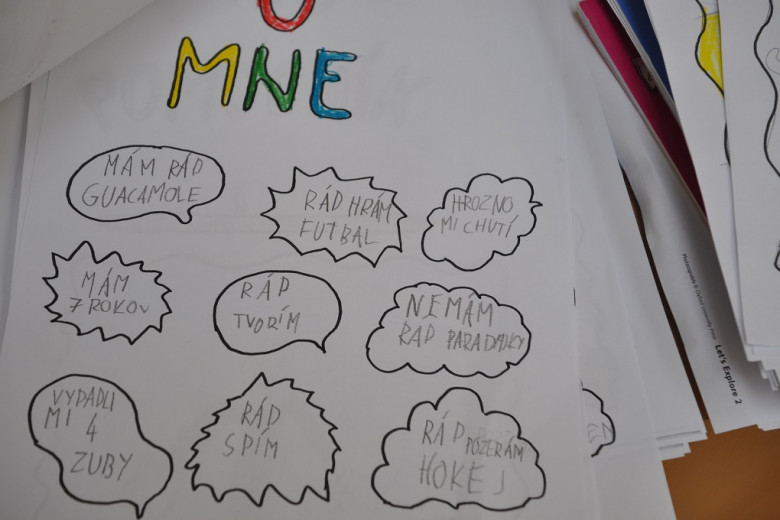 O
MNE
MÁM RÁD
GUACAMOLE
RÁD HRÁM
FUTBAL
HROZNO
MI CHUTÍ
MÁM
7 ROKOV
RÁD
TVORÍM
NEMÁM
RÁD PARADAJKY
VYPADLI
MI 4
ZUBY
RÁD
SPÍM
RÁD POZERÁM
HOKEJ
Let's Explore 2